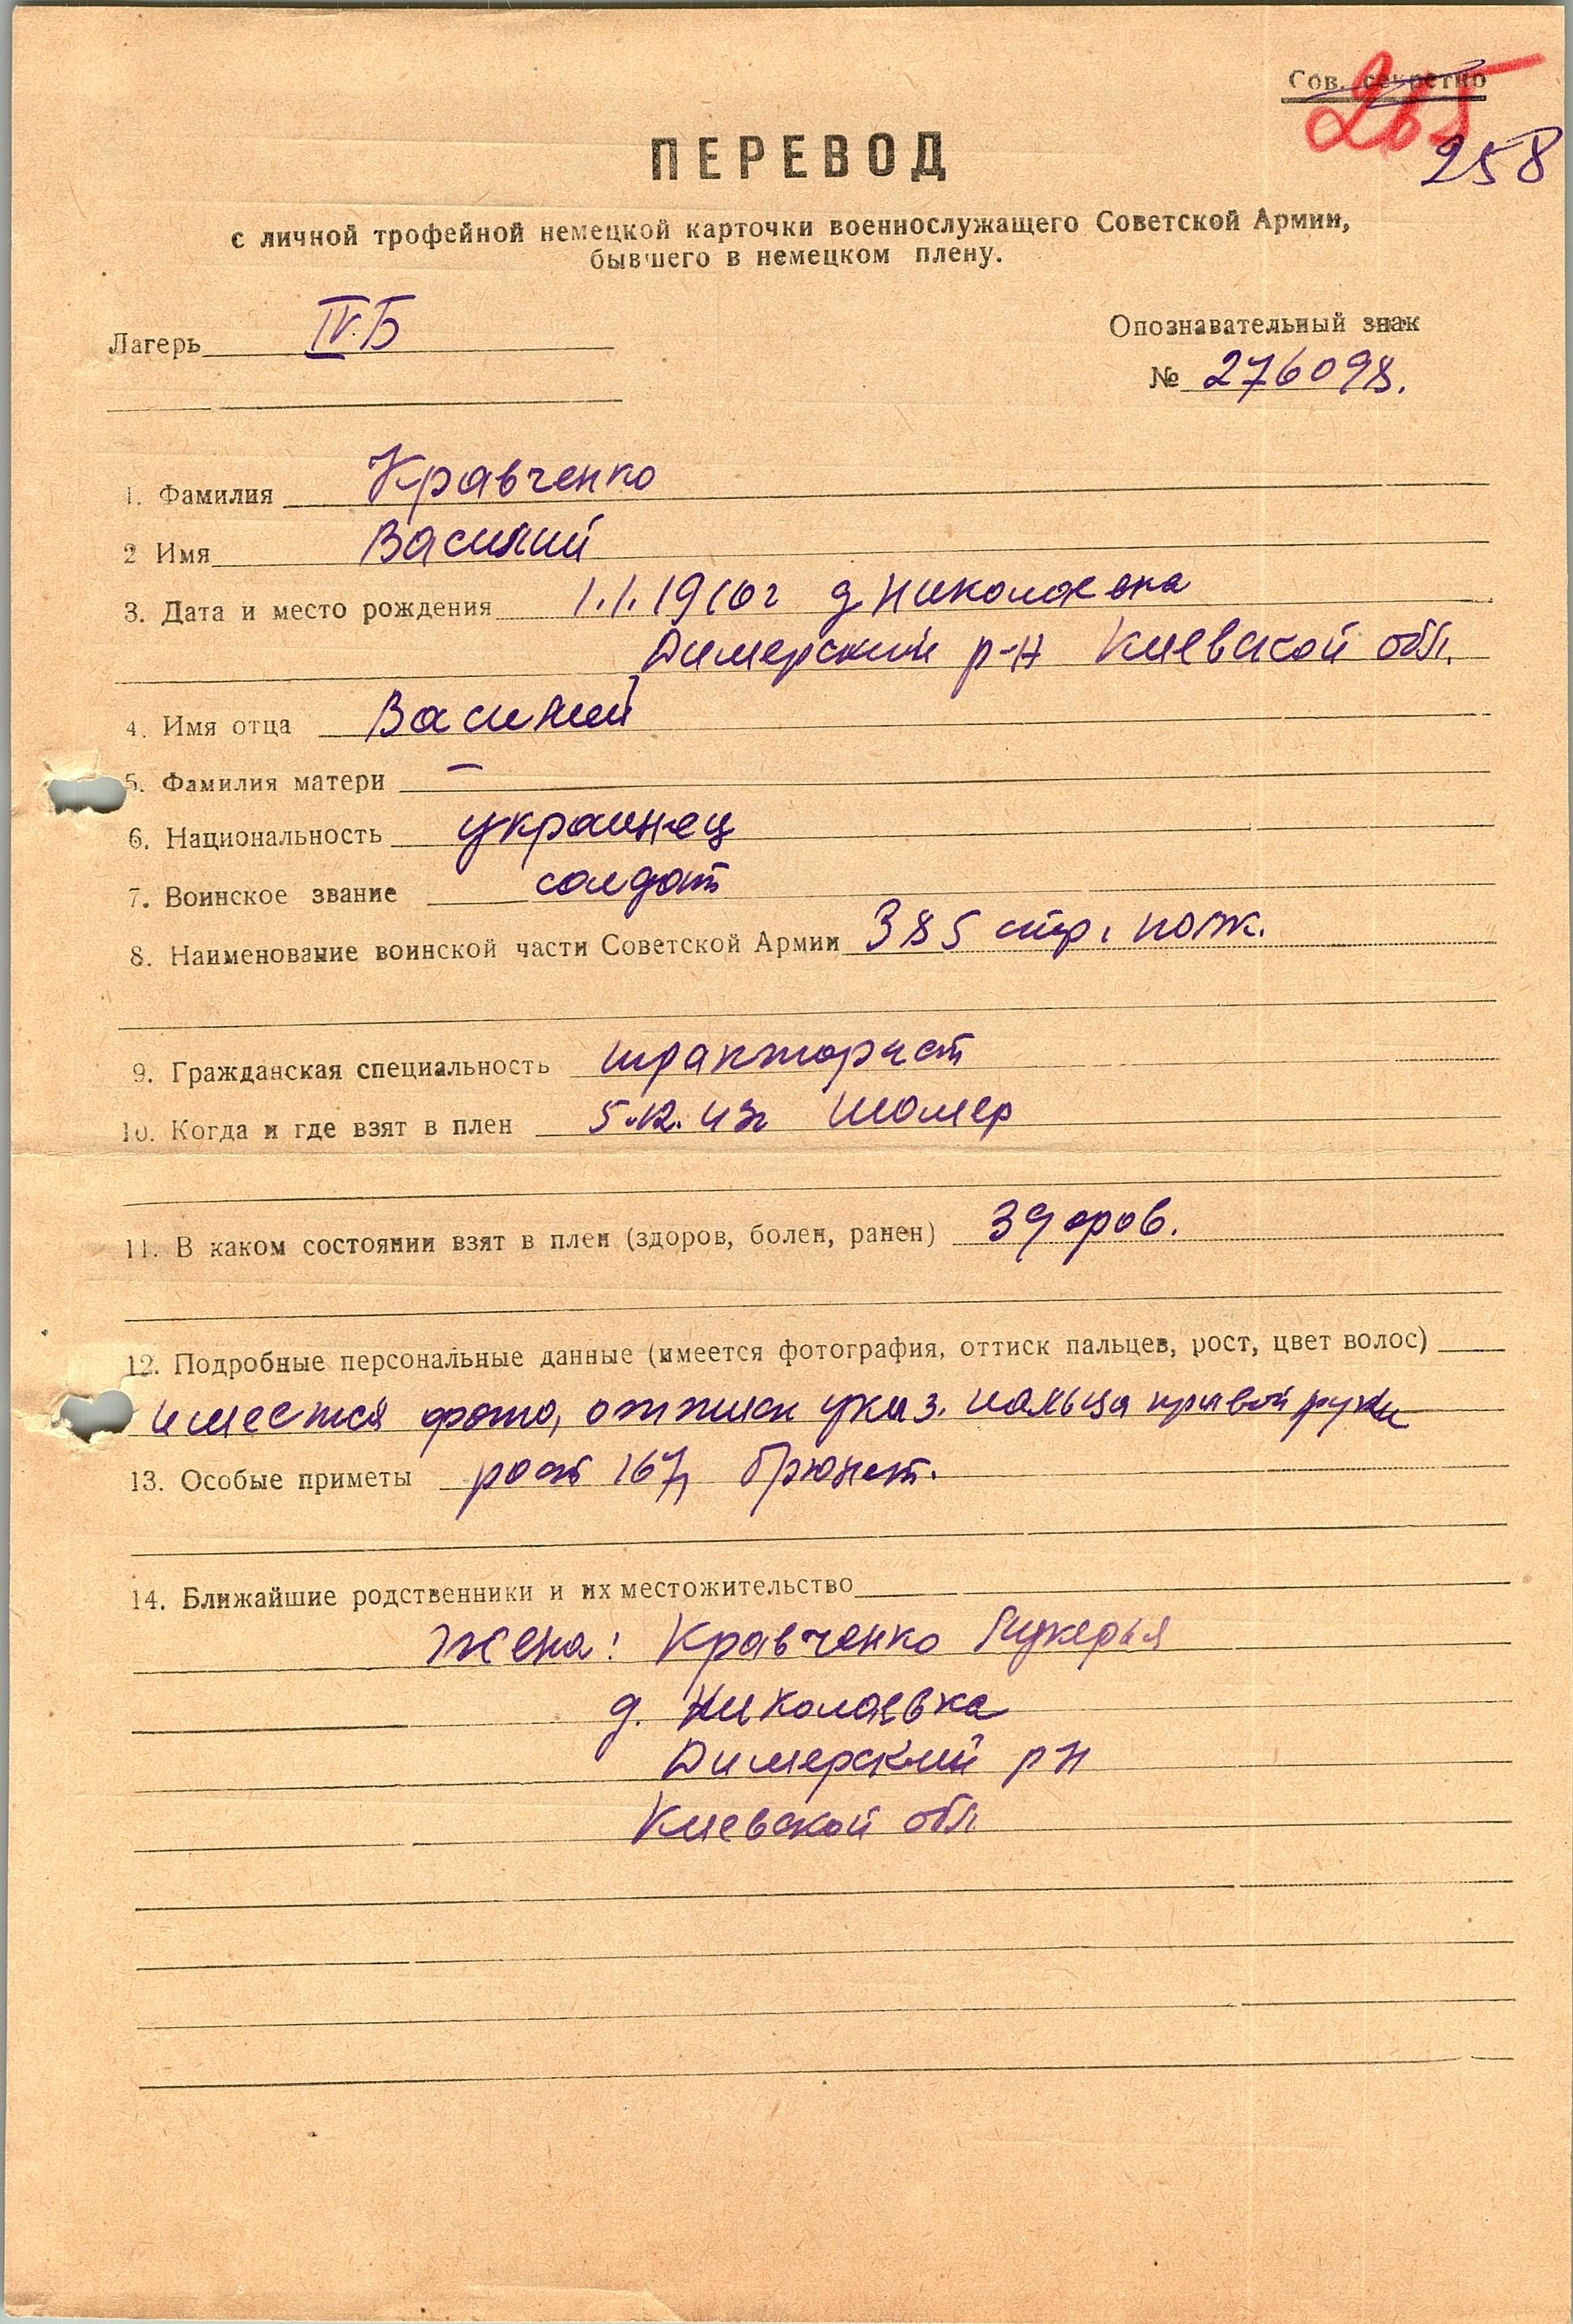 Сов. секретно
265
258
ПЕРЕВОД
с личной трофейной немецкой карточки военнослужащего Советской Армии,
бывшего в немецком плену.
Лагерь IV.Б
Опознавательный знак
№ 276098.
1. Фамилия Кравченко
2 Имя Василий
3. Дата и место рождения 1.1.1910г д Николаевка
Димерский р-н Киевской обл.
4. Имя отца Василий
5. Фамилия матери —
6. Национальность украинец
7. Воинское звание солдат
8. Наименование воинской части Советской Армии 385 стр. полк.
9. Гражданская специальность тракторист
10. Когда и где взят в плен 5.12.43г
11. В каком состоянии взят в плен (здоров, болен, ранен) здоров.
12. Подробные персональные данные (имеется фотография, оттиск пальцев, рост, цвет волос)
имеется фото, оттиск указ. пальца правой руки
13. Особые приметы рост 167, брюнет.
14. Ближайшие родственники и их местожительство
Жена: Кравченко Лукерья
д. Николаевка
Димерский р н
Киевской обл